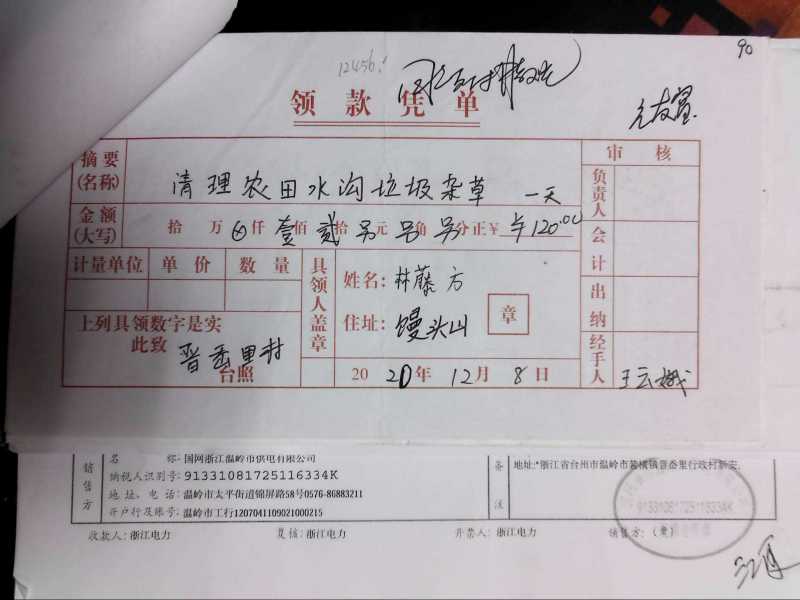 90
12456
领款凭单
摘要(名称) 清理农田水沟垃圾杂草 一天
审核
金额(大写) 拾 万 仟 壹佰 贰拾 另元 另角 另分正¥ 120.00
负责人
会计
出纳
经手人 王云娥
计量单位 单价 数量
具领人盖章
姓名: 林藤方
住址: 馒头山
章
上列具领数字是实
此致
晋岙里村
台照
2020年12月8日
销售方
名称: 国网浙江温岭市供电有限公司
纳税人识别号: 91331081725116334K
地址、电话: 温岭市太平街道锦屏路58号0576-86883211
开户行及账号: 温岭市工行1207041109021000215
备注
地址:*浙江省台州市温岭市箬横镇晋岙里行政村新安.
91331081725116334K
收款人: 浙江电力
复核: 浙江电力
开票人: 浙江电力
销售方: (章)